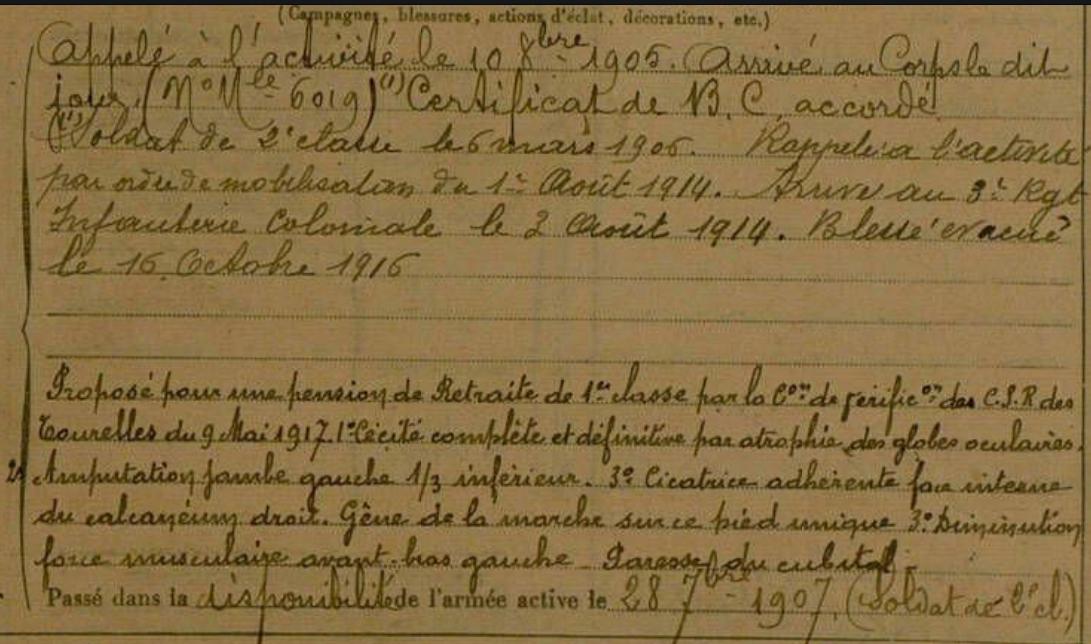 (Campagnes, blessures, actions d'éclat, décorations, etc.)
Appelé à l'activité le 10 8bre 1905. Arrivé au Corps le dit
jour (No Mle 6019) (1) Certificat de B. C. accordé
(1) Soldat de 2e classe le 6 mars 1906. Rappelé à l'activité
par ordre de mobilisation du 1er Août 1914. Arrivé au 3e Rgt
Infanterie Coloniale le 2 Août 1914. Blessé évacué
le 16 Octobre 1916
Proposé pour une pension de Retraite de 1ere classe par la Con de vérificon des C.S.R des
Tourelles du 9 Mai 1917. 1° Cécité complète et définitive par atrophie des globes oculaires.
2° Amputation jambe gauche 1/3 inférieur. 3° Cicatrice adhérente face interne
du calcanéum droit. Gêne de la marche sur ce pied unique 3° Diminution
force musculaire avant-bras gauche. du cubital.
Passé dans la disponibilité de l'armée active le 28 7bre 1907. (Soldat de 2e cl.)